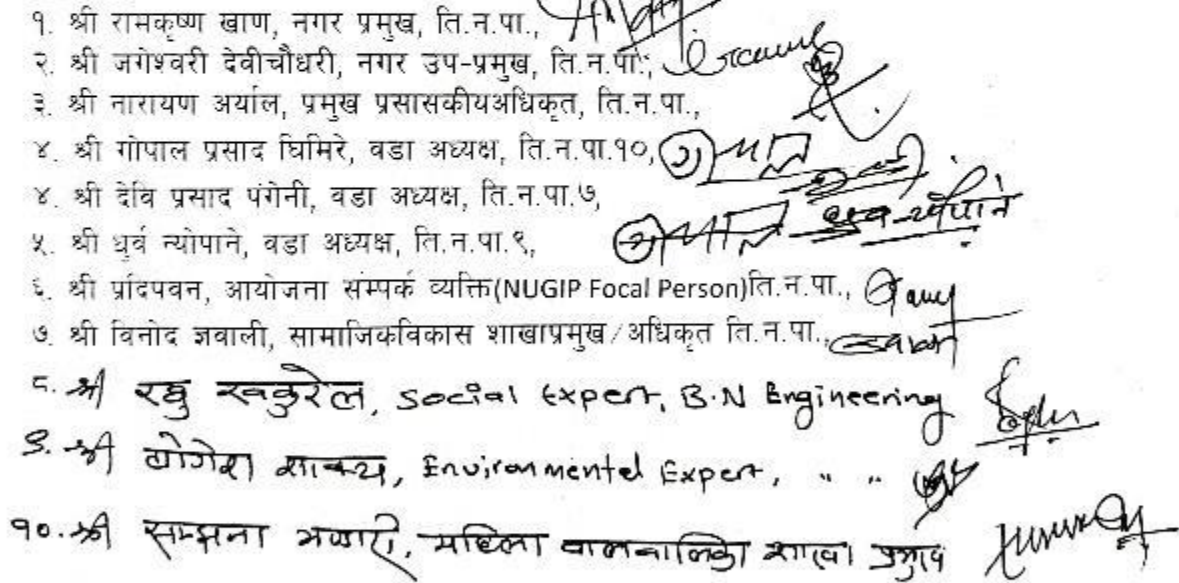 १. श्री रामकृष्ण खाण, नगर प्रमुख, ति.न.पा.,
२. श्री जगेश्वरी देवीचौधरी, नगर उप-प्रमुख, ति.न.पा.,
३. श्री नारायण अर्याल, प्रमुख प्रसासकीयअधिकृत, ति.न.पा.,
४. श्री गोपाल प्रसाद घिमिरे, वडा अध्यक्ष, ति.न.पा.१०,
४. श्री देवि प्रसाद पंगेनी, वडा अध्यक्ष, ति.न.पा.७,
५. श्री धुर्व न्योपाने, वडा अध्यक्ष, ति.न.पा.९,
६. श्री प्रदिपवन, आयोजना संम्पर्क व्यक्ति(NUGIP Focal Person)ति.न.पा.,
७. श्री विनोद ज्ञवाली, सामाजिकविकास शाखाप्रमुख/अधिकृत ति.न.पा.,
८. श्री रघु खकुरेल, Social Expert, B.N Engineering
९. श्री योगेश शाक्य, Environmental Expert, " "
१०. श्री सम्झना भण्डारी, महिला बालबालिका शाखा प्रमुख